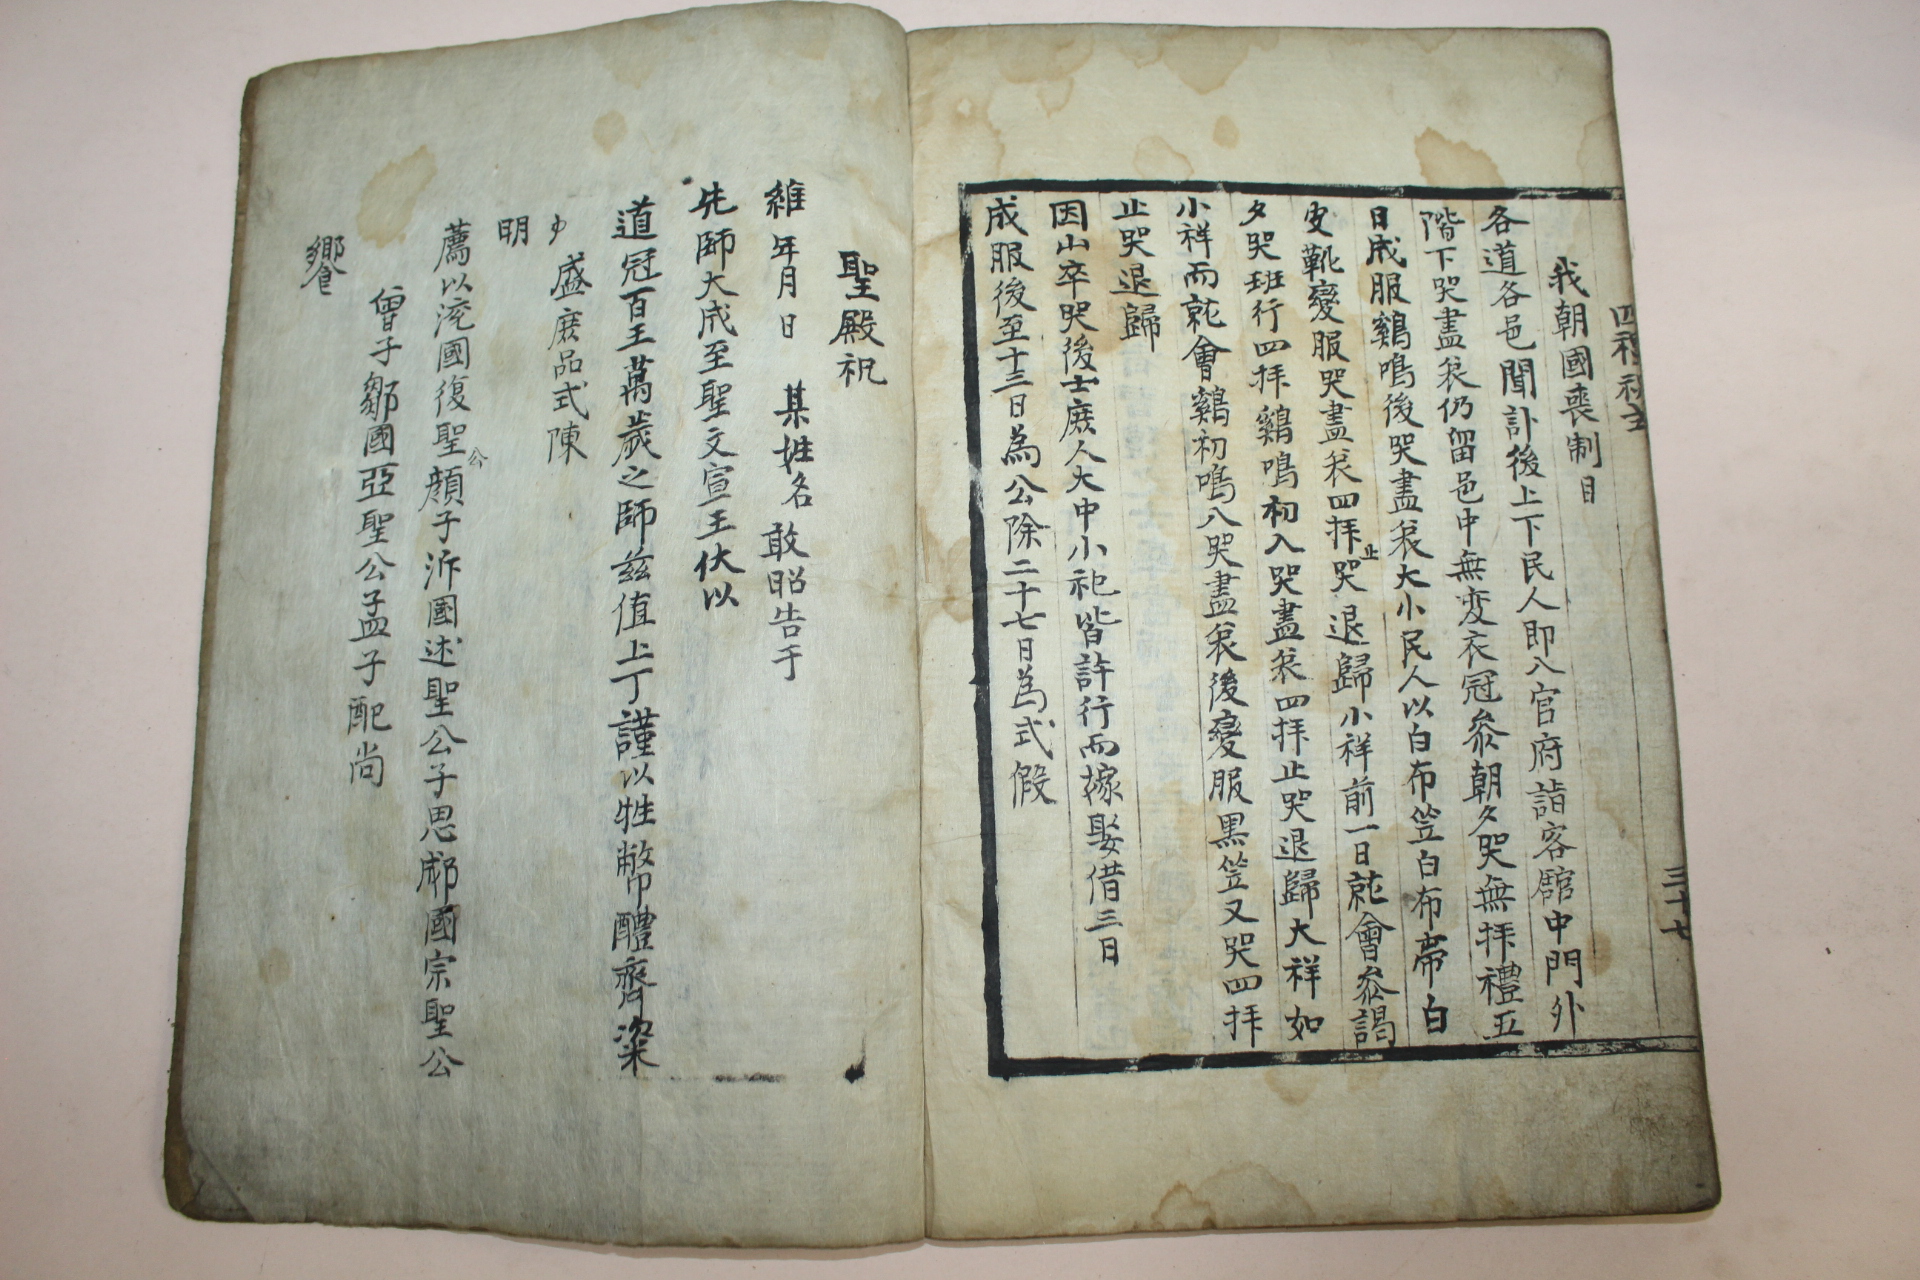 四禮祝
三十七
我朝國喪制目
各道各邑聞訃後上下民人即入官府詣客館中門外
階下哭盡哀仍留邑中無変衣冠叅朝夕哭無拜禮五
日成服鷄鳴後哭盡哀大小民人以白布笠白布帶白
皮靴變服哭盡哀四拜止哭退歸小祥前一日就會叅謁
夕哭班行四拜鷄鳴初入哭盡哀四拜止哭退歸大祥如
小祥而就會鷄初鳴入哭盡哀後變服黑笠又哭四拜
止哭退歸
因山卒哭後士庶人大中小祀皆許行而嫁娶借三日
成服後至十三日為公除二十七日為式假
聖殿祝
維年月日 某姓名敢昭告于
先師大成至聖文宣王伏以
道冠百王萬歲之師茲值上丁謹以牲幣醴齊粢
盛庶品式陳
明
薦以兗國復聖公顔子沂國述聖公子思郕國宗聖公
曾子鄒國亞聖公孟子配尚
饗